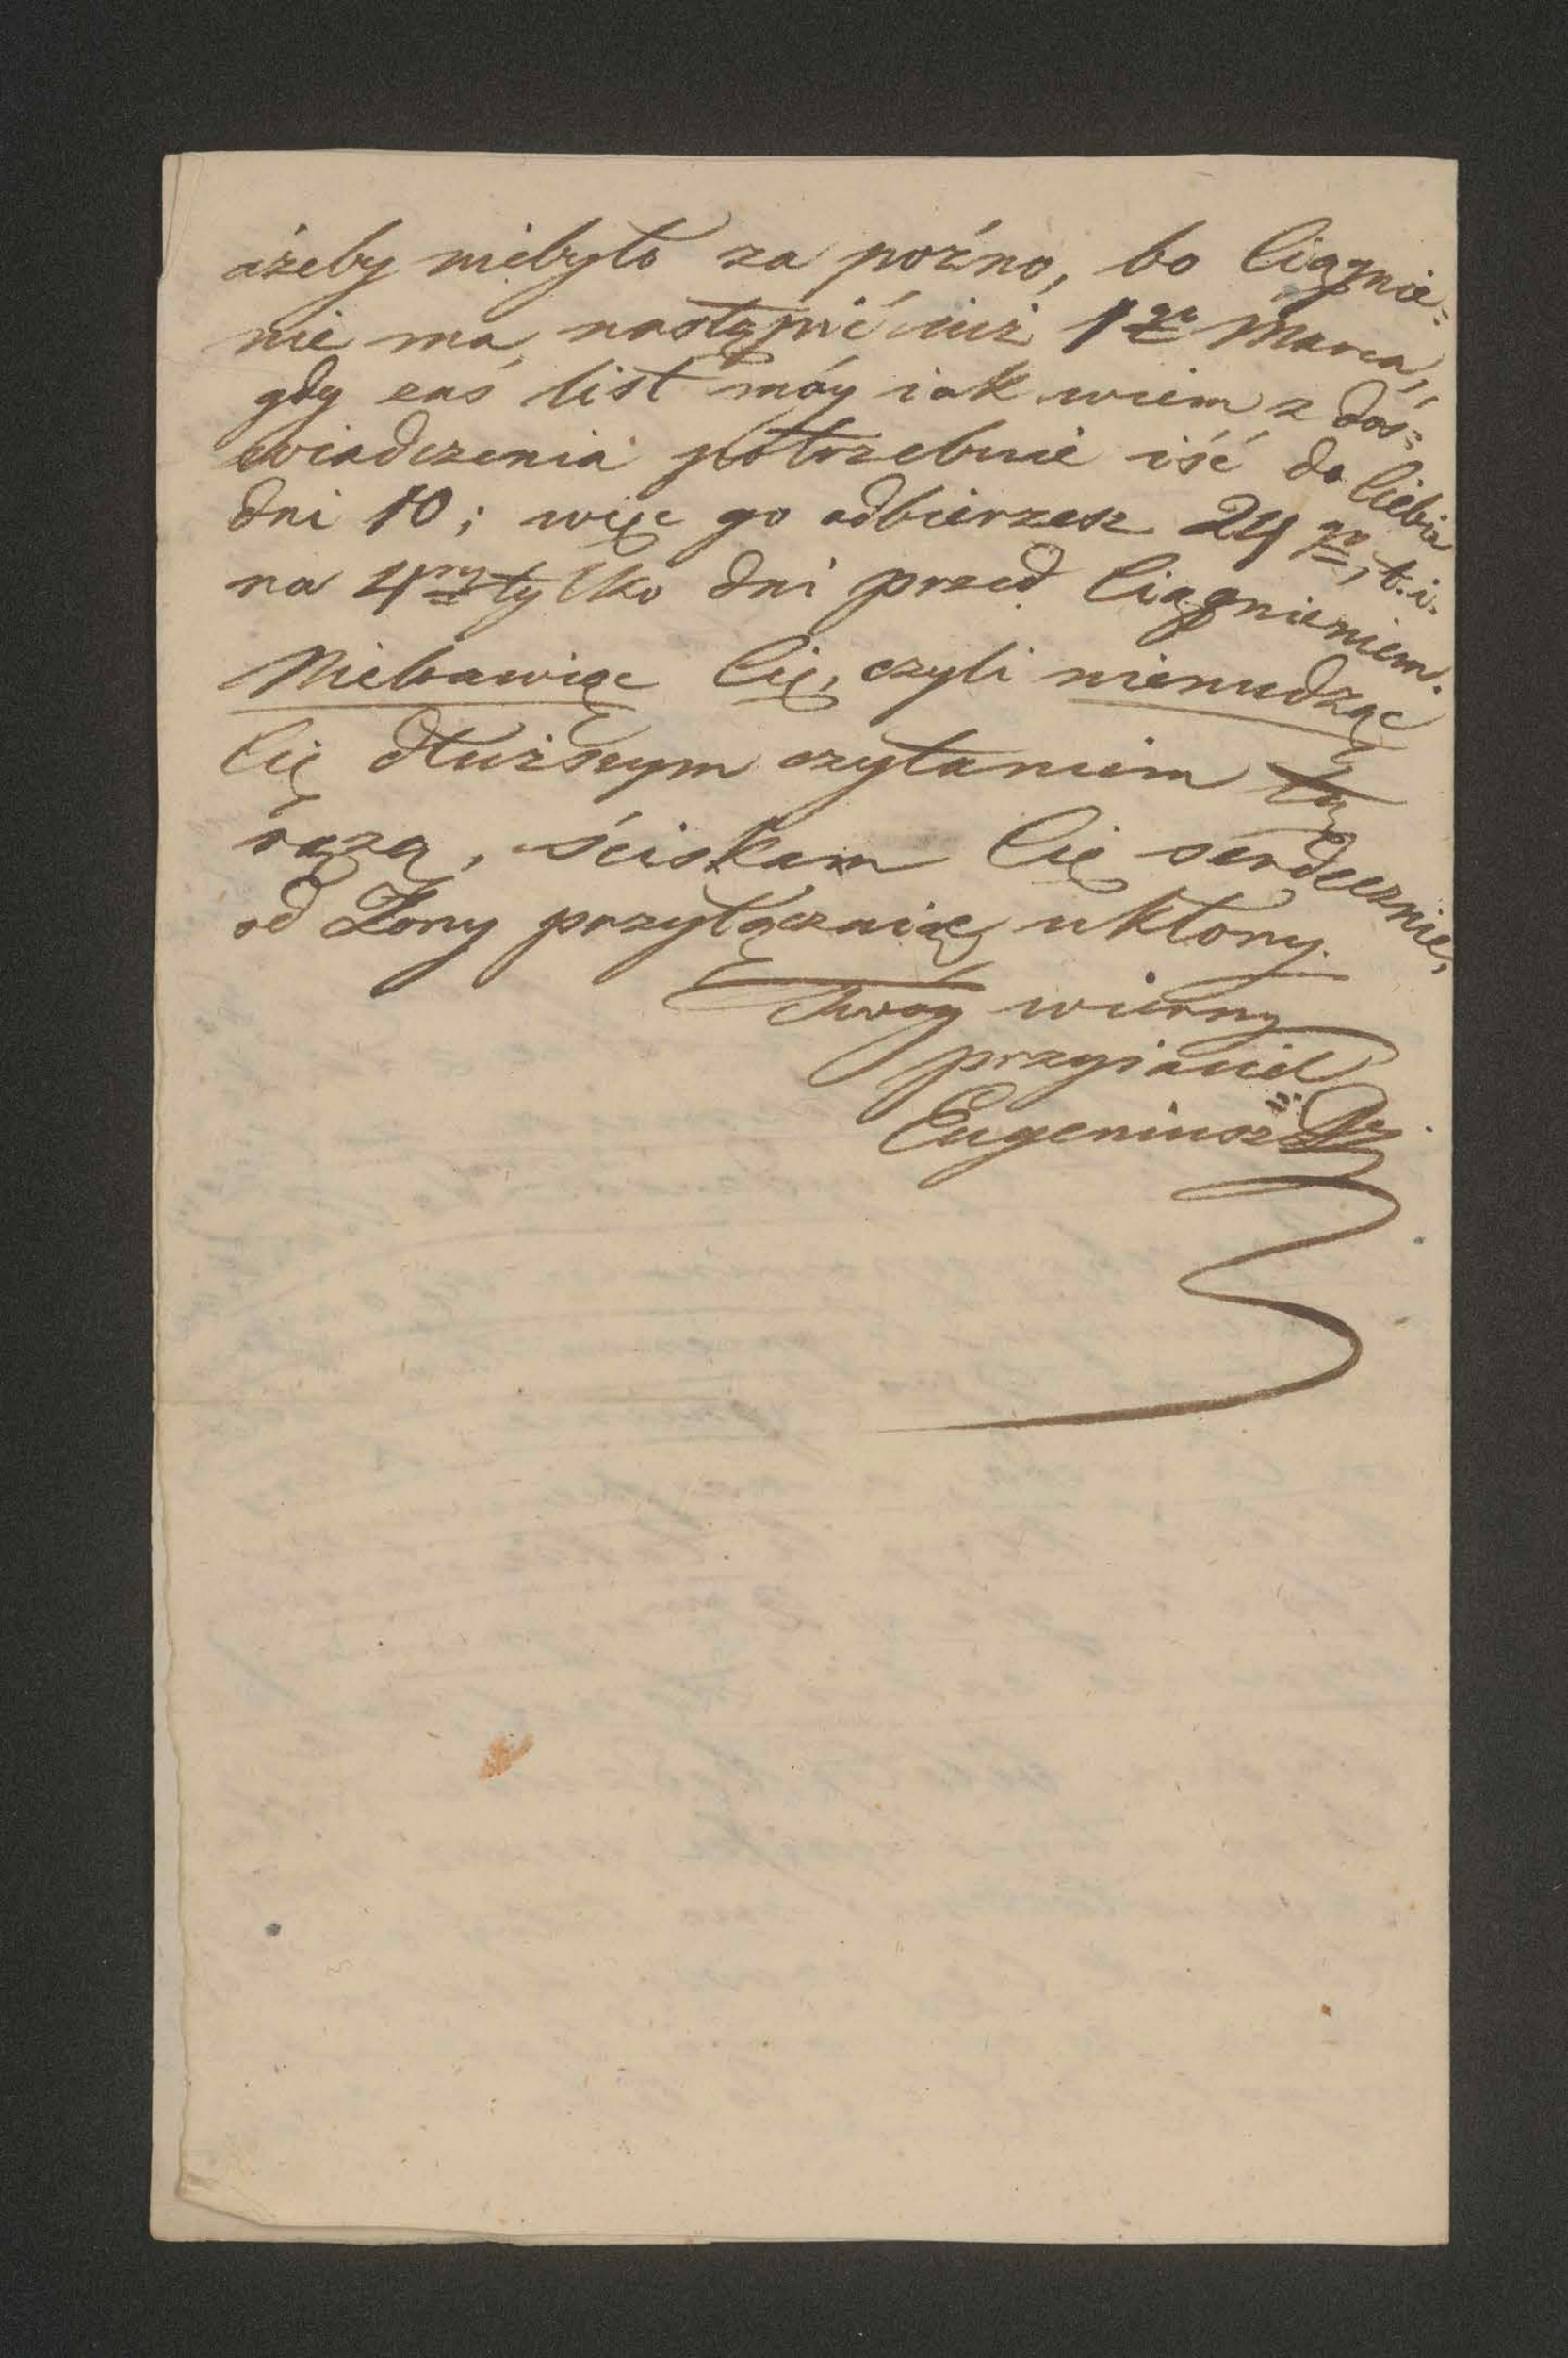 ażeby niebyło za poźno, bo Ciągnie=
nie ma nastąpić iuż 1go Marca,
gdy zaś list móy iak wiem z doś=
wiadczenia potrzebuie iść do Ciebie
dni 10; więc go odbierzesz 24go, t.i.
na 4ry tylko dni przed Ciągnieniem.
Niebawiąc Cię, czyli nienudząc
Cię dłuższym czytaniem tą
razą, ściskam Cię serdecznie,
od Żony przyłączaiąc ukłony.
Twoy wierny
przyiaciel
Eugeniusz